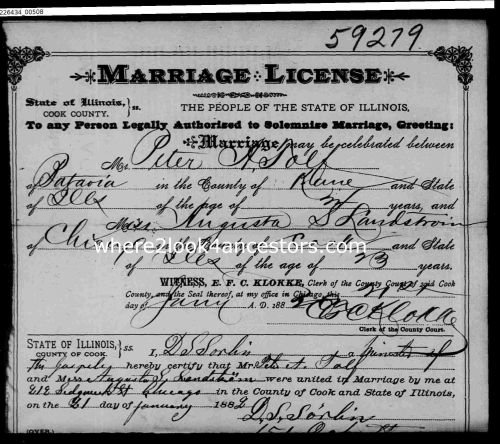 226434_00508
59279
MARRIAGE LICENSE
State of Illinois, } ss.
COOK COUNTY.
THE PEOPLE OF THE STATE OF ILLINOIS,
To any Person Legally Authorized to Solemnize Marriage, Greeting:
Marriage may be celebrated between
Mr. Peter A.
of Batavia in the County of Kane and State
of Ills of the age of years, and
M Augusta S. Landstrom
of and State
where2look4ancestors.com
of Ills of the age of 23 years.
WITNESS, E. F. C. KLOKKE, Clerk of the County Court of said Cook
County, and the Seal thereof, at my office in Chicago, this
day of Jany A. D. 188 E F C Klokke
Clerk of the County Court.
STATE OF ILLINOIS, } ss.
COUNTY OF COOK.
I, a minister of
the Gospel, hereby certify that Mr. Peter A.
and M Augusta were united in Marriage by me at
Sedgwick St Chicago in the County of Cook and State of Illinois,
on the 21 day of January 188
(OVER.)